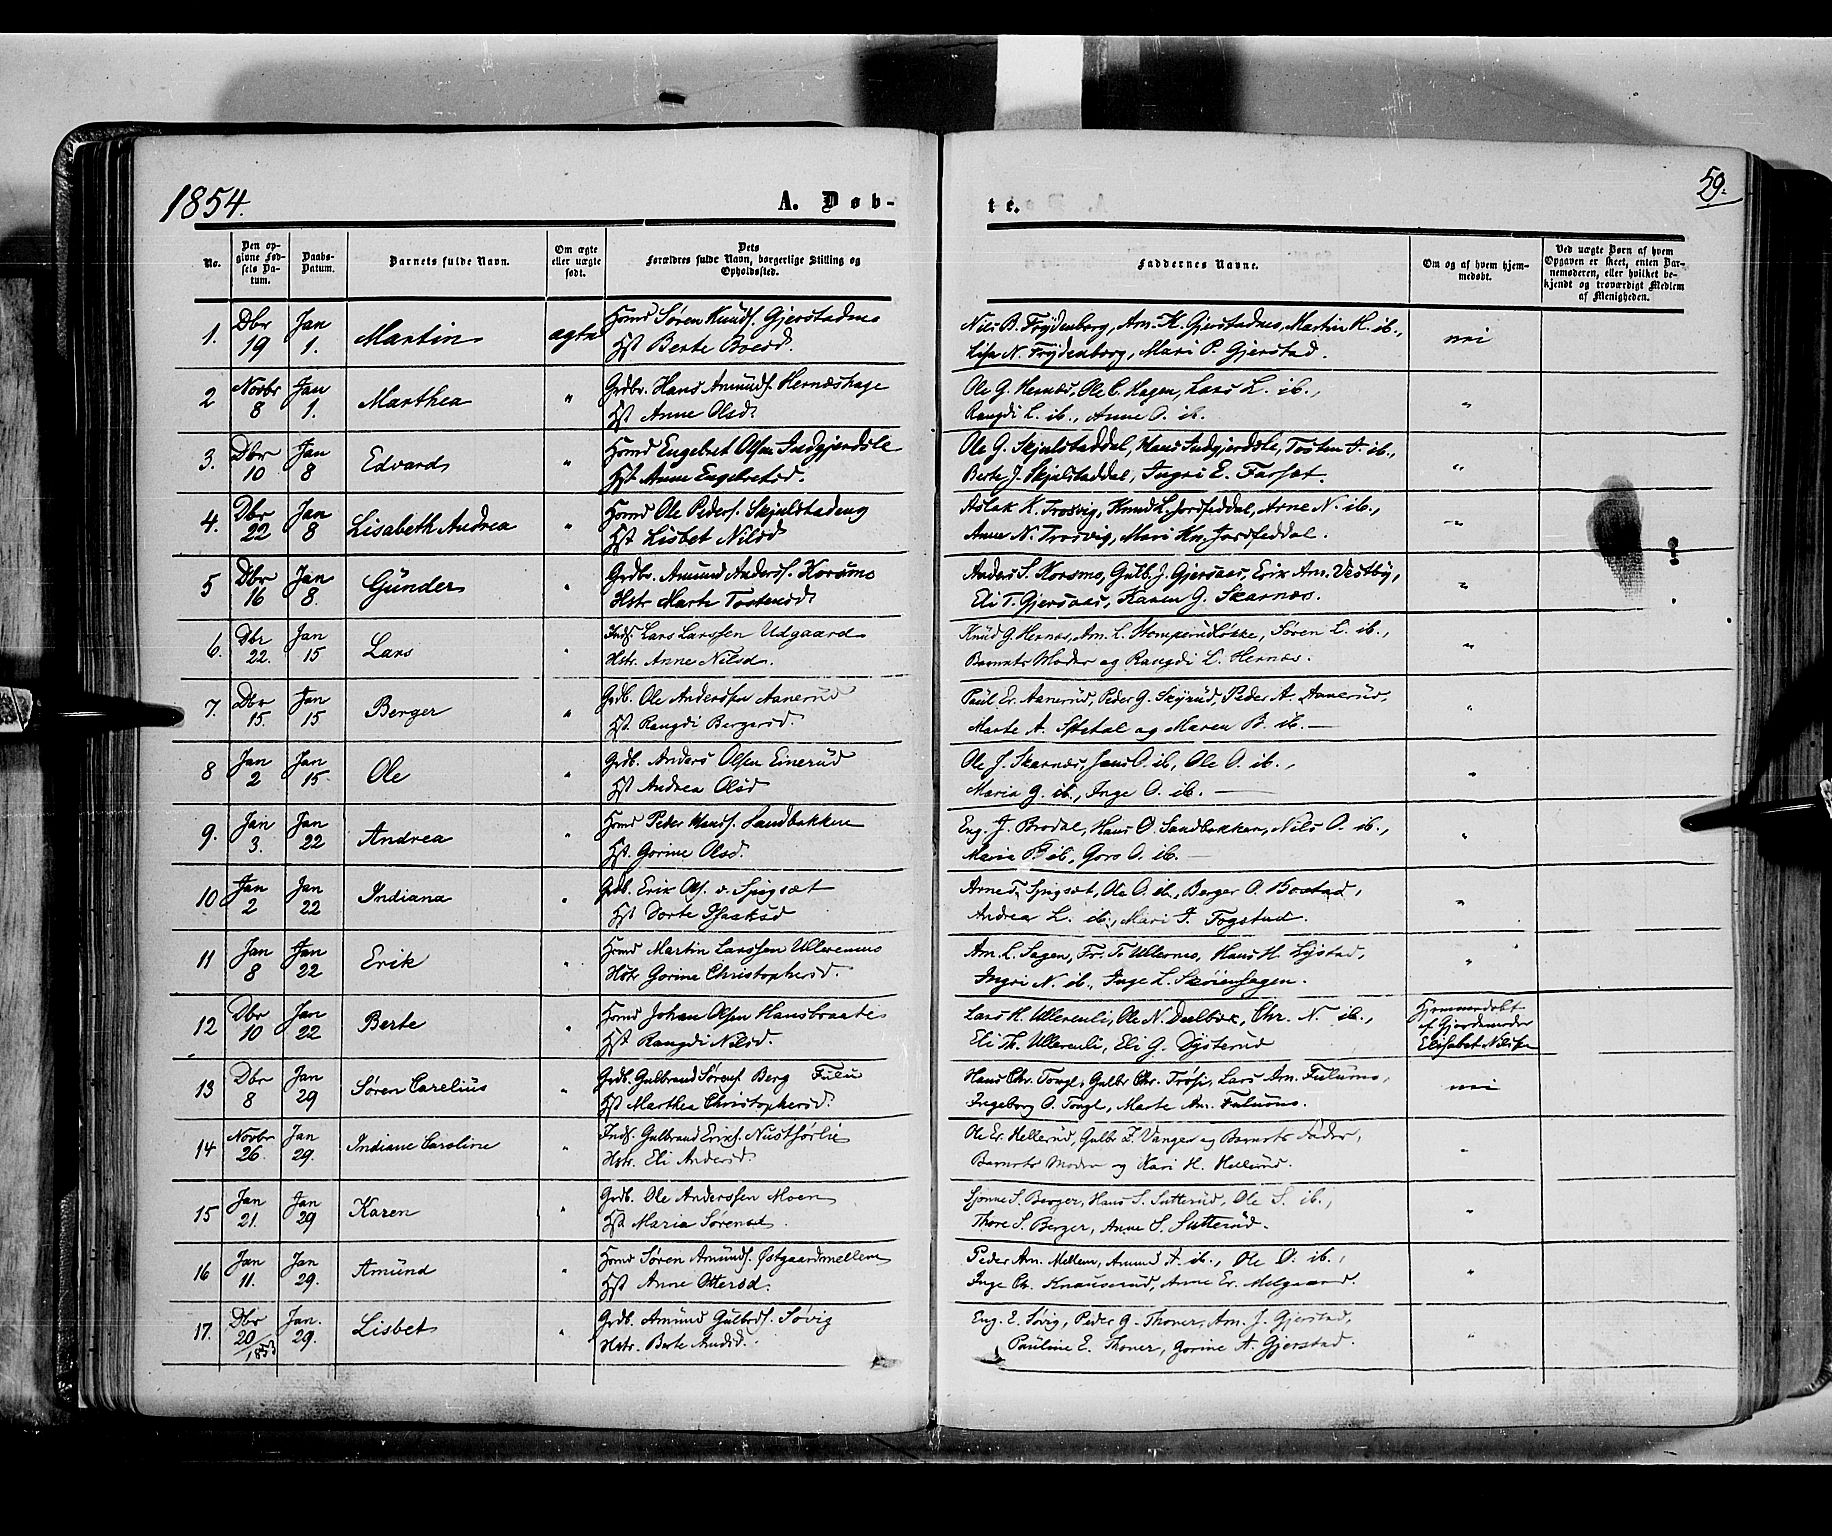 1854.
A. Døb-
te.
59.
No.
Den op-
givne Fød-
sels Da-
tum.
Daabs-
Datum.
Barnets fulde Navn.
Om ægte
eller uægte
født.
Dets
Forældres fulde Navn, borgerlige Stilling og
Opholdssted.
Faddernes Navne.
Om og af hvem hjem-
medøbt.
Ved uægte Børn af hvem
Opgaven er skeet, enten Bar-
nemoderen, eller hvilket be-
kjendt og troværdigt Medlem
af Menigheden.
1. Dbr 19 Jan 1. Martin ægte Hmd Søren Knuds. Gjerstadnes
Hst Berte Boersd.
Nils B. Frydenborg, Am. K. Gjerstadnes, Martin H. ib.,
Lisa N. Frydenborg, Mari P. Gjerstad.
nei
2 Novbr 8 Jan 1. Marthea " Grdbr. Hans Amunds. Hernæshage
Hst Anne Olsd.
Ole G. Hernæs, Ole C. Hagen, Lars L. ib.,
Rangdi L. ib., Anne O. ib.
"
3. Dbr 10 Jan 8 Edvard " Hmd Engebret Olsen
Hst Anne Engebretsd.
Ole G. Skjulstaddal, Hans Tosten A. ib.,
Berte J. Skjulstaddal, Ingri E. Farsæt.
"
4. Dbr 22 Jan 8 Lisabeth Andrea " Hmd Ole Peders. Skjulstadeng
Hst Lisbet Nilsd
Aslak K. Trosvig, Knud L. Jordfeddal, Arne N. ib.,
Anne N. Trosvig, Mari Kn. Jordfeddal.
"
5 Dbr 16 Jan 8. Gunder " Grdbr. Amund Anders. Korsmo
Hstr Marte Tostensd.
Anders S. Korsmo, Gulb. J. Gjersaas, Erik Am. Vestby,
Eli T. Gjersaas, Karen G. Skarnæs.
"
6. Dbr 22. Jan 15 Lars " Inds. Lars Larssen Udgaard
Hstr. Anne Nilsd.
Knud G. Hernæs, Am. L. Søren L. ib.,
Barnets Moder og Rangdi L. Hernæs.
"
7. Dbr 15. Jan 15 Berger " Grdb. Ole Anderssen Aanerud
Hst. Rangdi Bergersd.
Paul Er. Aanerud, Peder G. Skyrud, Peder A. Aanerud,
Marte A. og Maren B. ib.
"
8 Jan 2 Jan 15. Ole " Grdb. Anders Olsen Einerud
Hst Andrea Olsd
Ole J. Skarnæs, Jens O. ib, Ole O. ib.,
Maria G. ib., Inge O. ib.
"
9. Jan 3. Jan 22 Andrea " Hmd Peter Hans. Sandbakken
Hst. Gorine Olsd.
Eng. J. Brodal, Hans O. Sandbakken, Nils O. ib.,
Maria P. ib, Goro O. ib.
"
10 Jan 2 Jan 22 Indiana " Grdb. Erik Ols. v. Spigsæt
Hst Dorte Isaksd
Arne T. Spigsæt, Ole O. ib., Berger O. Bostad,
Andrea L. ib., Mari J. Togstad.
"
11 Jan 8 Jan 22 Erik " Hmd Martin Larssen Ullerennes
Hstr Gorine Christophersd.
Am. L. Sagen, Fr. T. Ullernes, Hans H. Lystad,
Ingri N. ib., Inge L. Skøienhagen.
"
12 Dbr 10 Jan 22 Berte " Hmd Johan Olsen Hansbraate
Hst Rangdi Nilsd.
Lars H. Ullereneli, Ole N. Dælbæk, Chr. N ib.,
Eli Th. Ullereneli, Eli G. Dysterud
Hjemmedøbt
af Gjordemoder
Elisabet Nilsen
13 Dbr 8 Jan 29 Søren Carelius " Grdb. Gulbrand Sørens. Berg Fulu
Hst Marthea Christophersd.
Hans Chr. Tongl, Gulbr. Chr. Trøfti, Lars Am. Fulunes,
Ingeborg O. Tongl, Marte Am. Fulunes.
nei
14 Novbr 26. Jan 29. Indiane Caroline " Inds. Gulbrand Eriks. Nustsørlie
Hstr. Eli Andersd.
Ole Er. Hellerud, Gulbr. Z. Vanger og Barnets Fader,
Barnets Moder og Kari H. Hellerud.
"
15 Jan 21. Jan 29 Karen " Grdb. Ole Anderssen Moen
Hst Maria Sørensd.
Sjønne S. Berger, Hans S. Sutterud, Ole S. ib.,
Thore S. Berger, Anne S. Sutterud.
"
16 Jan 11. Jan 29. Amund " Hmd Søren Amunds. Østgaardmellem
Hst Anne Ottersd.
Peder Am. Mellem, Amund A. ib., Ole O. ib.,
Inge Ch. Knauserud, Anne Er. Melgaard.
"
17. Dbr 20/1853 Jan. 29. Lisbet " Grdb. Amund Gulbrds. Søvig
Hstr. Berte Amdsd.
Eng. E. Søvig, Peder G. Thoner, Am. J. Gjerstad,
Pauline E. Thoner, Gorine A. Gjerstad.
"